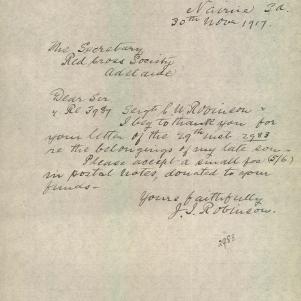 Nairne Rd.
30th Nov. 1917.
The Secretary
Red Cross Society
Adelaide
Dear Sir
Re 3987 Sergt C. W. Robinson
I beg to thank you for
your letter of the 29th inst. 2983
re the belongings of my late son -
Please accept a small (5/6)
in postal notes, donated to your
funds -
Yours faithfully
J. S. Robinson.
2983